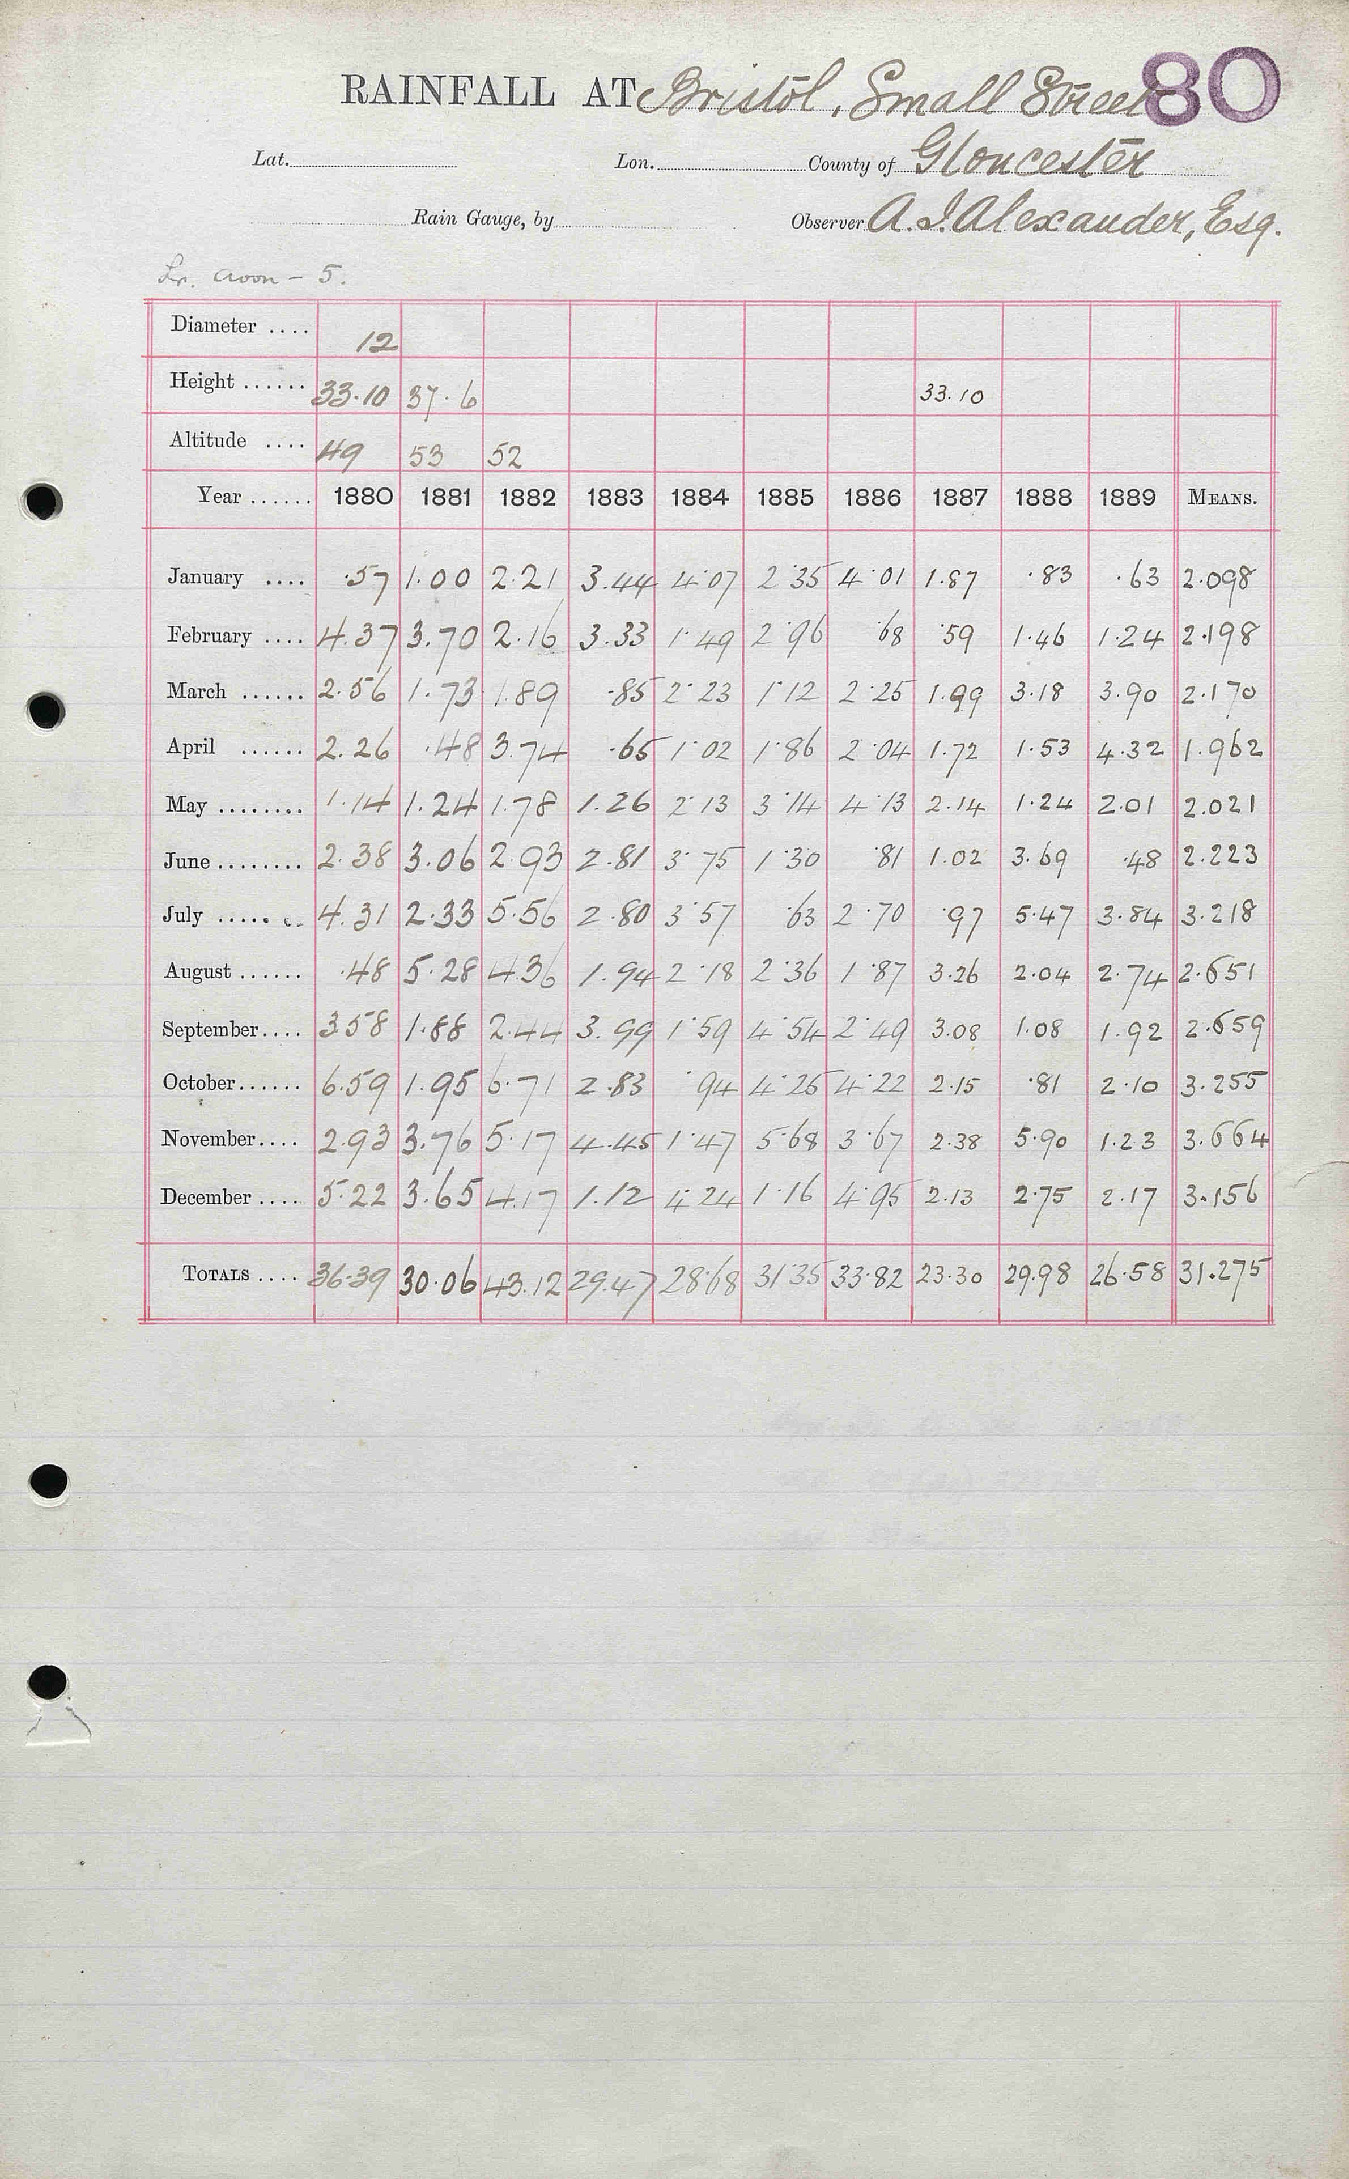 RAINFALL AT Bristol, Small Street 80
Lat. Lon. County of Gloucester
Rain Gauge, by Observer A. J. Alexander, Esq.
Lr. Avon - 5.
Diameter .... 12
Height ...... 33.10 37.6 33.10
Altitude .... 49 53 52
Year ...... 1880 1881 1882 1883 1884 1885 1886 1887 1888 1889 MEANS.
January .... .57 1.00 2.21 3.44 4.07 2.35 4.01 1.87 .83 .63 2.098
February .... 4.37 3.70 2.16 3.33 1.49 2.96 .68 .59 1.46 1.24 2.198
March ...... 2.56 1.73 1.89 .85 2.23 1.12 2.25 1.99 3.18 3.90 2.170
April ...... 2.26 .48 3.74 .65 1.02 1.86 2.04 1.72 1.53 4.32 1.962
May ........ 1.14 1.24 1.78 1.26 2.13 3.14 4.13 2.14 1.24 2.01 2.021
June ........ 2.38 3.06 2.93 2.81 3.75 1.30 .81 1.02 3.69 .48 2.223
July ........ 4.31 2.33 5.56 2.80 3.57 .63 2.70 .97 5.47 3.84 3.218
August ...... .48 5.28 4.36 1.94 2.18 2.36 1.87 3.26 2.04 2.74 2.651
September.... 3.58 1.88 2.44 3.99 1.59 4.54 2.49 3.08 1.08 1.92 2.659
October...... 6.59 1.95 6.71 2.83 .94 4.25 4.22 2.15 .81 2.10 3.255
November.... 2.93 3.76 5.17 4.45 1.47 5.68 3.67 2.38 5.90 1.23 3.664
December .... 5.22 3.65 4.17 1.12 4.24 1.16 4.95 2.13 2.75 2.17 3.156
TOTALS .... 36.39 30.06 43.12 29.47 28.68 31.35 33.82 23.30 29.98 26.58 31.275